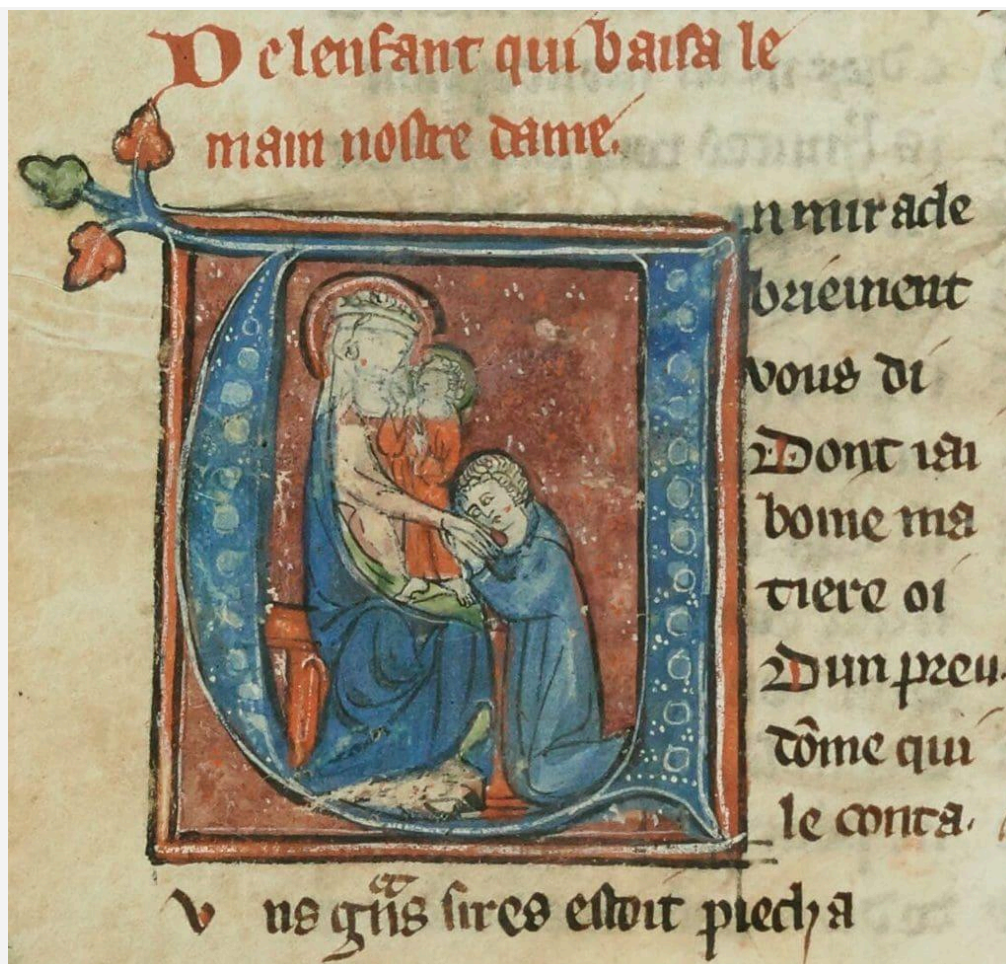 De lenfant qui baisa le
main nostre dame.
Un miracle
briement
vous di
Dont iai
boine ma
tiere oi
Dun preu
dōme qui
le conta.
Vns sires estoit piech a